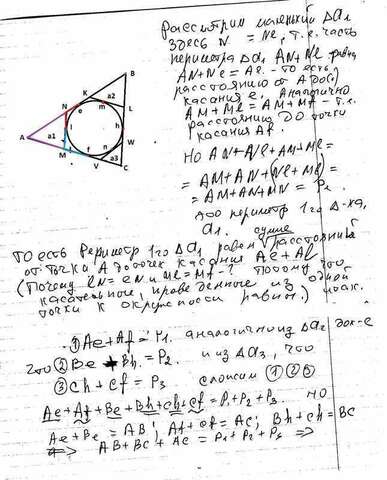 Рассмотрим маленький Δa₁
здесь N = Ne, т.е. часть
периметра Δa₁ AN+Nl равна
AN+Ne = Ae. - то есть
расстоянию от A до
касания e. Аналогично
AM+Ml = AM+Mf - т.е.
расстоянию до точки
касания Af.
Но AN+Nl+AM+Ml=
= AM+AN+(Nl+Ml)=
= AM+AN+MN = P₁
это периметр 1го Δ-ка,
a₁.
То есть периметр 1го Δa₁ равен расстояний
от точки A до точек касания Ae+Af
(Почему lN=eN и Ml=Mf-? Потому что
касательные, проведенные из одной
точки к окружности равны.)
① Ae+Af=P₁. аналогично из Δa₂
что ② Be + Bh = P₂ и из Δa₃, что
③ Ch + Cf = P₃ сложим ① ② ③
Ae+Af+Be+Bh+Ch+Cf = P₁+P₂+P₃. но
Ae+Be = AB; Af+Cf = AC; Bh+Ch = BC
⟺ AB+BC+AC = P₁+P₂+P₃ ⇒
B
K
a2
L
N
e
m
A
a1
l
h
M
f
n
W
a3
V
C